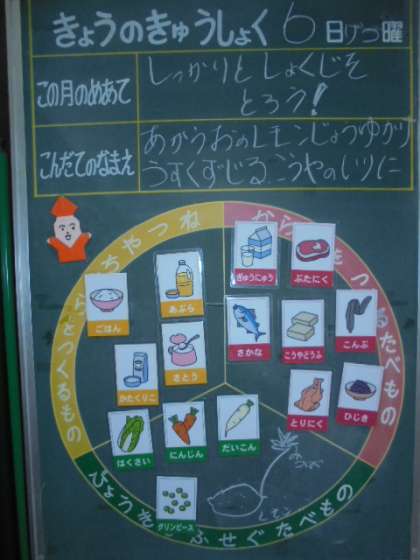 きょうのきゅうしょく 6日げつ曜
この月のめあて
しっかりとしょくじそ
とろう!
こんだてのなまえ
あかうおのレモンじょうゆがけ
うすくずじる こうやのいりに
ちやつね
をつくるもの
から
をつくるたべもの
びょうき
ふせぐたべもの
ぎゅうにゅう
ぶたにく
あぶら
ごはん
さかな
こうやどうふ
こんぶ
さとう
かたくりこ
とりにく
ひじき
はくさい
にんじん
だいこん
グリンピース
レモン